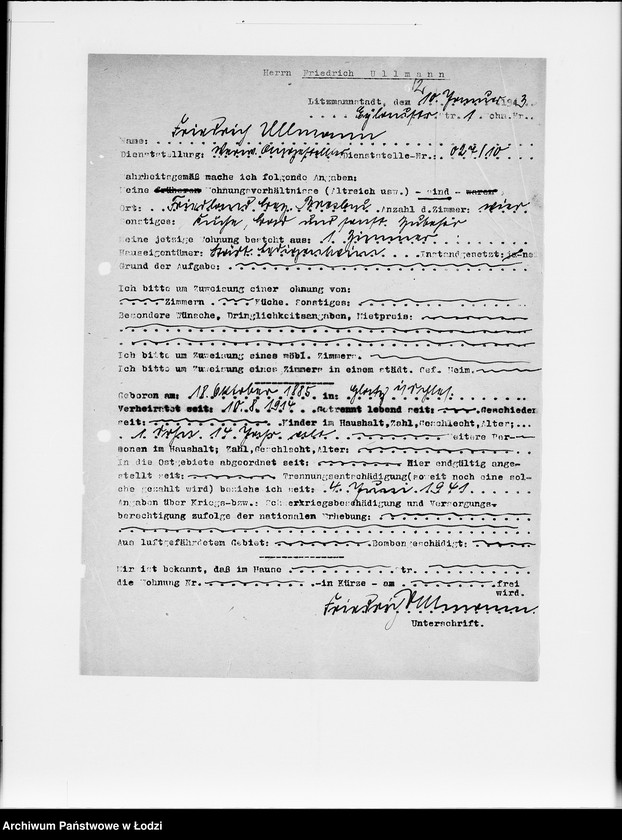 Herrn Friedrich Ullmann
Litzmannstadt, den 10. Januar 1943.
Str. 1. Whn.Nr..
Name: Friedrich Ullmann
Dienststellung: Verw. Angestellter Dienststelle-Nr.: 027/10
Wahrheitsgemäß mache ich folgende Angaben:
Meine früheren Wohnungsverhältnisse (Altreich usw.) - sind - waren
Ort: Friedland Bez. Breslau. Anzahl d.Zimmer: vier.
Sonstiges: Küche, Bad und sonst. Zubehör
Meine jetzige Wohnung besteht aus: 1 Zimmer.
Hauseigentümer: Städt. Ledigenheim. Instandgesetzt: ja-nein
Grund der Aufgabe:
Ich bitte um Zuweisung einer Wohnung von:
Zimmern. Küche. Sonstiges:
Besondere Wünsche, Dringlichkeitsangaben, Mietpreis:
Ich bitte um Zuweisung eines möbl. Zimmers.
Ich bitte um Zuweisung eines Zimmers in einem städt. Gef. Heim.
Geboren am: 18. Oktober 1885 in: Glatz i/Schles.
Verheiratet seit: 10.8.1914. Getrennt lebend seit: Geschieden
seit: Kinder im Haushalt, Zahl, Geschlecht, Alter:
1 Sohn 14 Jahr alt. Weitere Per-
sonen im Haushalt; Zahl, Geschlecht, Alter:
In die Ostgebiete abgeordnet seit: Hier endgültig ange-
stellt seit: Trennungsentschädigung (soweit noch eine sol-
che gezahlt wird) beziehe ich seit: 4. Juni 1941
Angaben über Kriegs-bzw.: Schwerkriegsbeschädigung und Versorgungs-
berechtigung zufolge der nationalen Erhebung:
Aus luftgefährdetem Gebiet: Bombengeschädigt:
Mir ist bekannt, daß im Hause Str.
die Wohnung Nr. -in Kürze - am frei
wird.
Friedrich Ullmann
Unterschrift.
Archiwum Państwowe w Łodzi